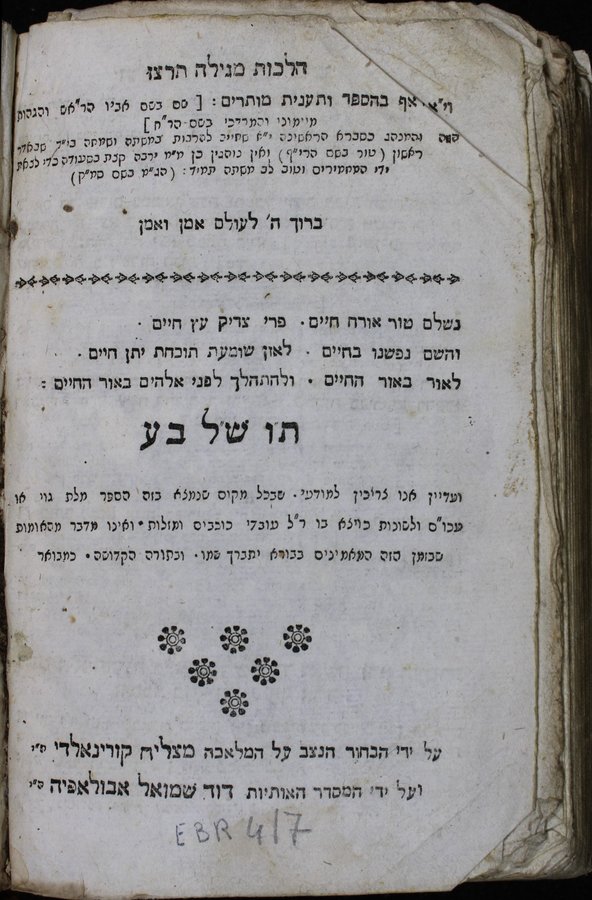 הלכות מגילה תרצז
וי"א אף בהספד ותענית מותרים: [ שם בשם אביו הרא"ש והגהות
מיימוני והמרדכי בשם הר"ח ]
הגה והמנהג כסברא הראשונה י"א שחייב להרבות במשתה ושמחה בי"ד שבאדר
ראשון (טור בשם הרי"ף) ואין נוהגין כן מ"מ ירבה קצת בסעודה כדי לצאת
ידי המחמירים וטוב לב משתה תמיד: (הג"מ בשם סמ"ק)
ברוך ה' לעולם אמן ואמן
נשלם טור אורח חיים. פרי צדיק עץ חיים.
והשם נפשנו בחיים . לאזן שומעת תוכחת יתן חיים.
לאור באור החיים . ולהתהלך לפני אלהים באור החיים :
תו של בע
ועדיין אנו צריכין למודעי. שבכל מקום שנמצא בזה הספר מלת גוי או
עכו"ם ולשונות כיוצא בו ר"ל עובדי כוכבים ומזלות. ואינו מדבר מהאומות
שבזמן הזה המאמינים בבורא יתברך שמו. ובתורה הקדושה. כמבואר
על ידי הבחור הנצב על המלאכה מצליח קורינאלדי ס"י
ועל ידי המסדר האותיות דוד שמואל אבולאפיה ס"י
EBR 417